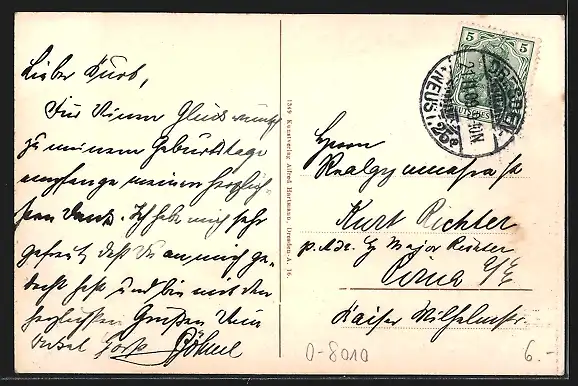 Lieber Kurt,
Für Deinen Glückwunsch
zu meinem Geburtstage
empfange meinen herzlich-
sten Dank. Ich habe mich sehr
gefreut, daß Du an mich ge-
dacht hast und bin mit den
herzlichsten Grüßen Dein
Onkel
1549 Kunstverlag Alfred Hartmann, Dresden-A. 16.
5 5
DRESDEN
NEUST. 25
Herrn
Realgymnasiast
Kurt Richter
p. Adr. Major Richter
Pirna a/E
Kaiser Wilhelmstr
O-8010
6.-